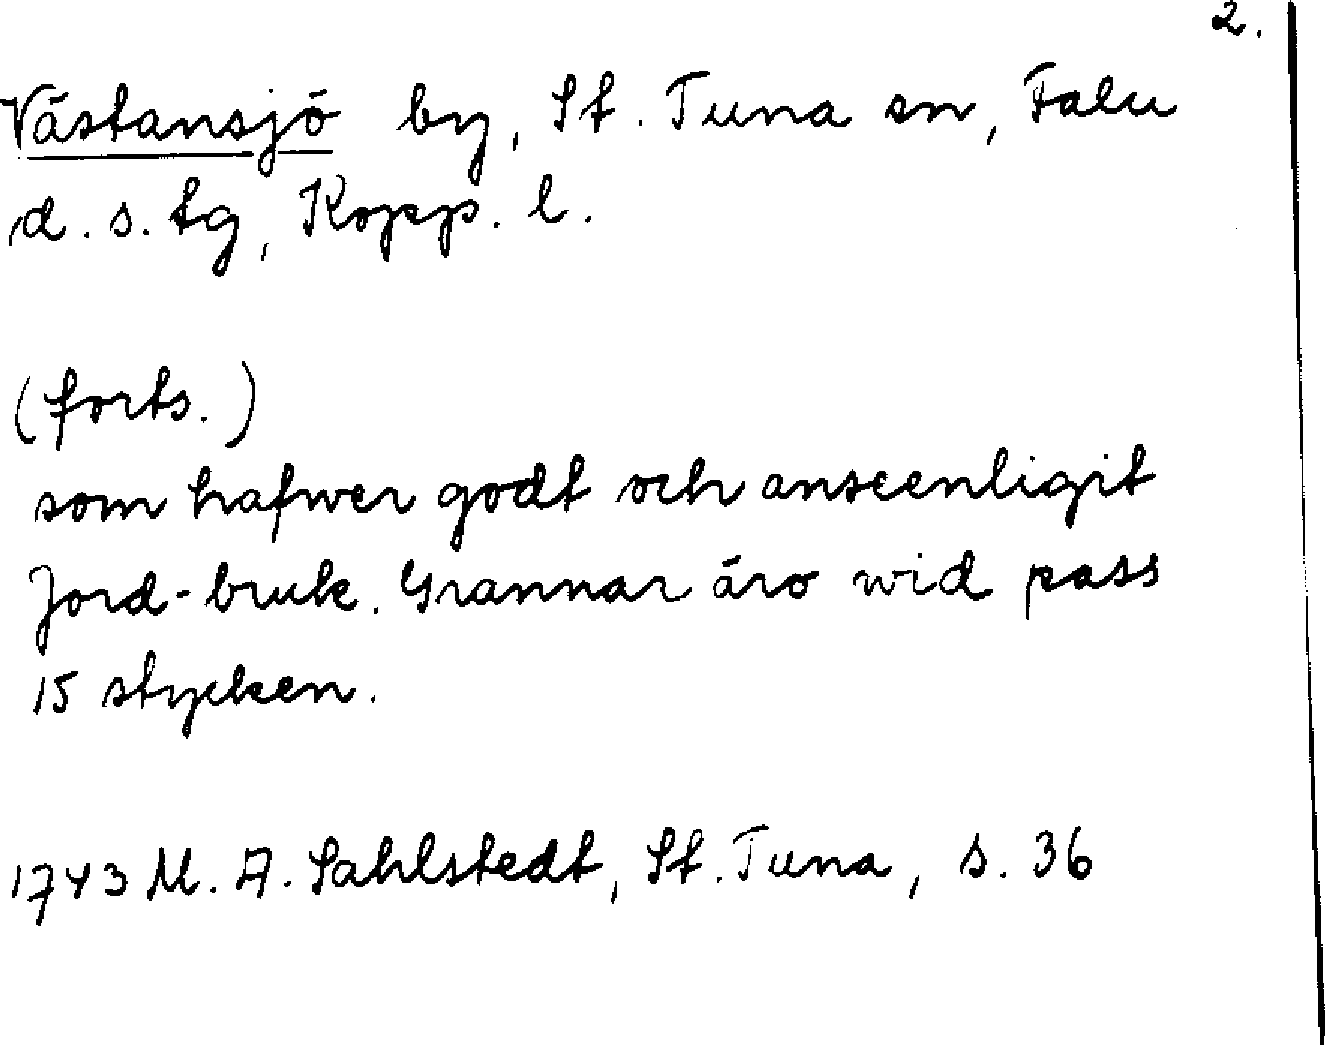 2.
Västansjö by, St. Tuna sn, Falu
d. s. tg, Kopp. l.
(forts.)
som hafwer godt och anseenligit
Jord-bruk. Grannar äro wid pass
15 stycken.
1743 M. A. Sahlstedt, St. Tuna, s. 36